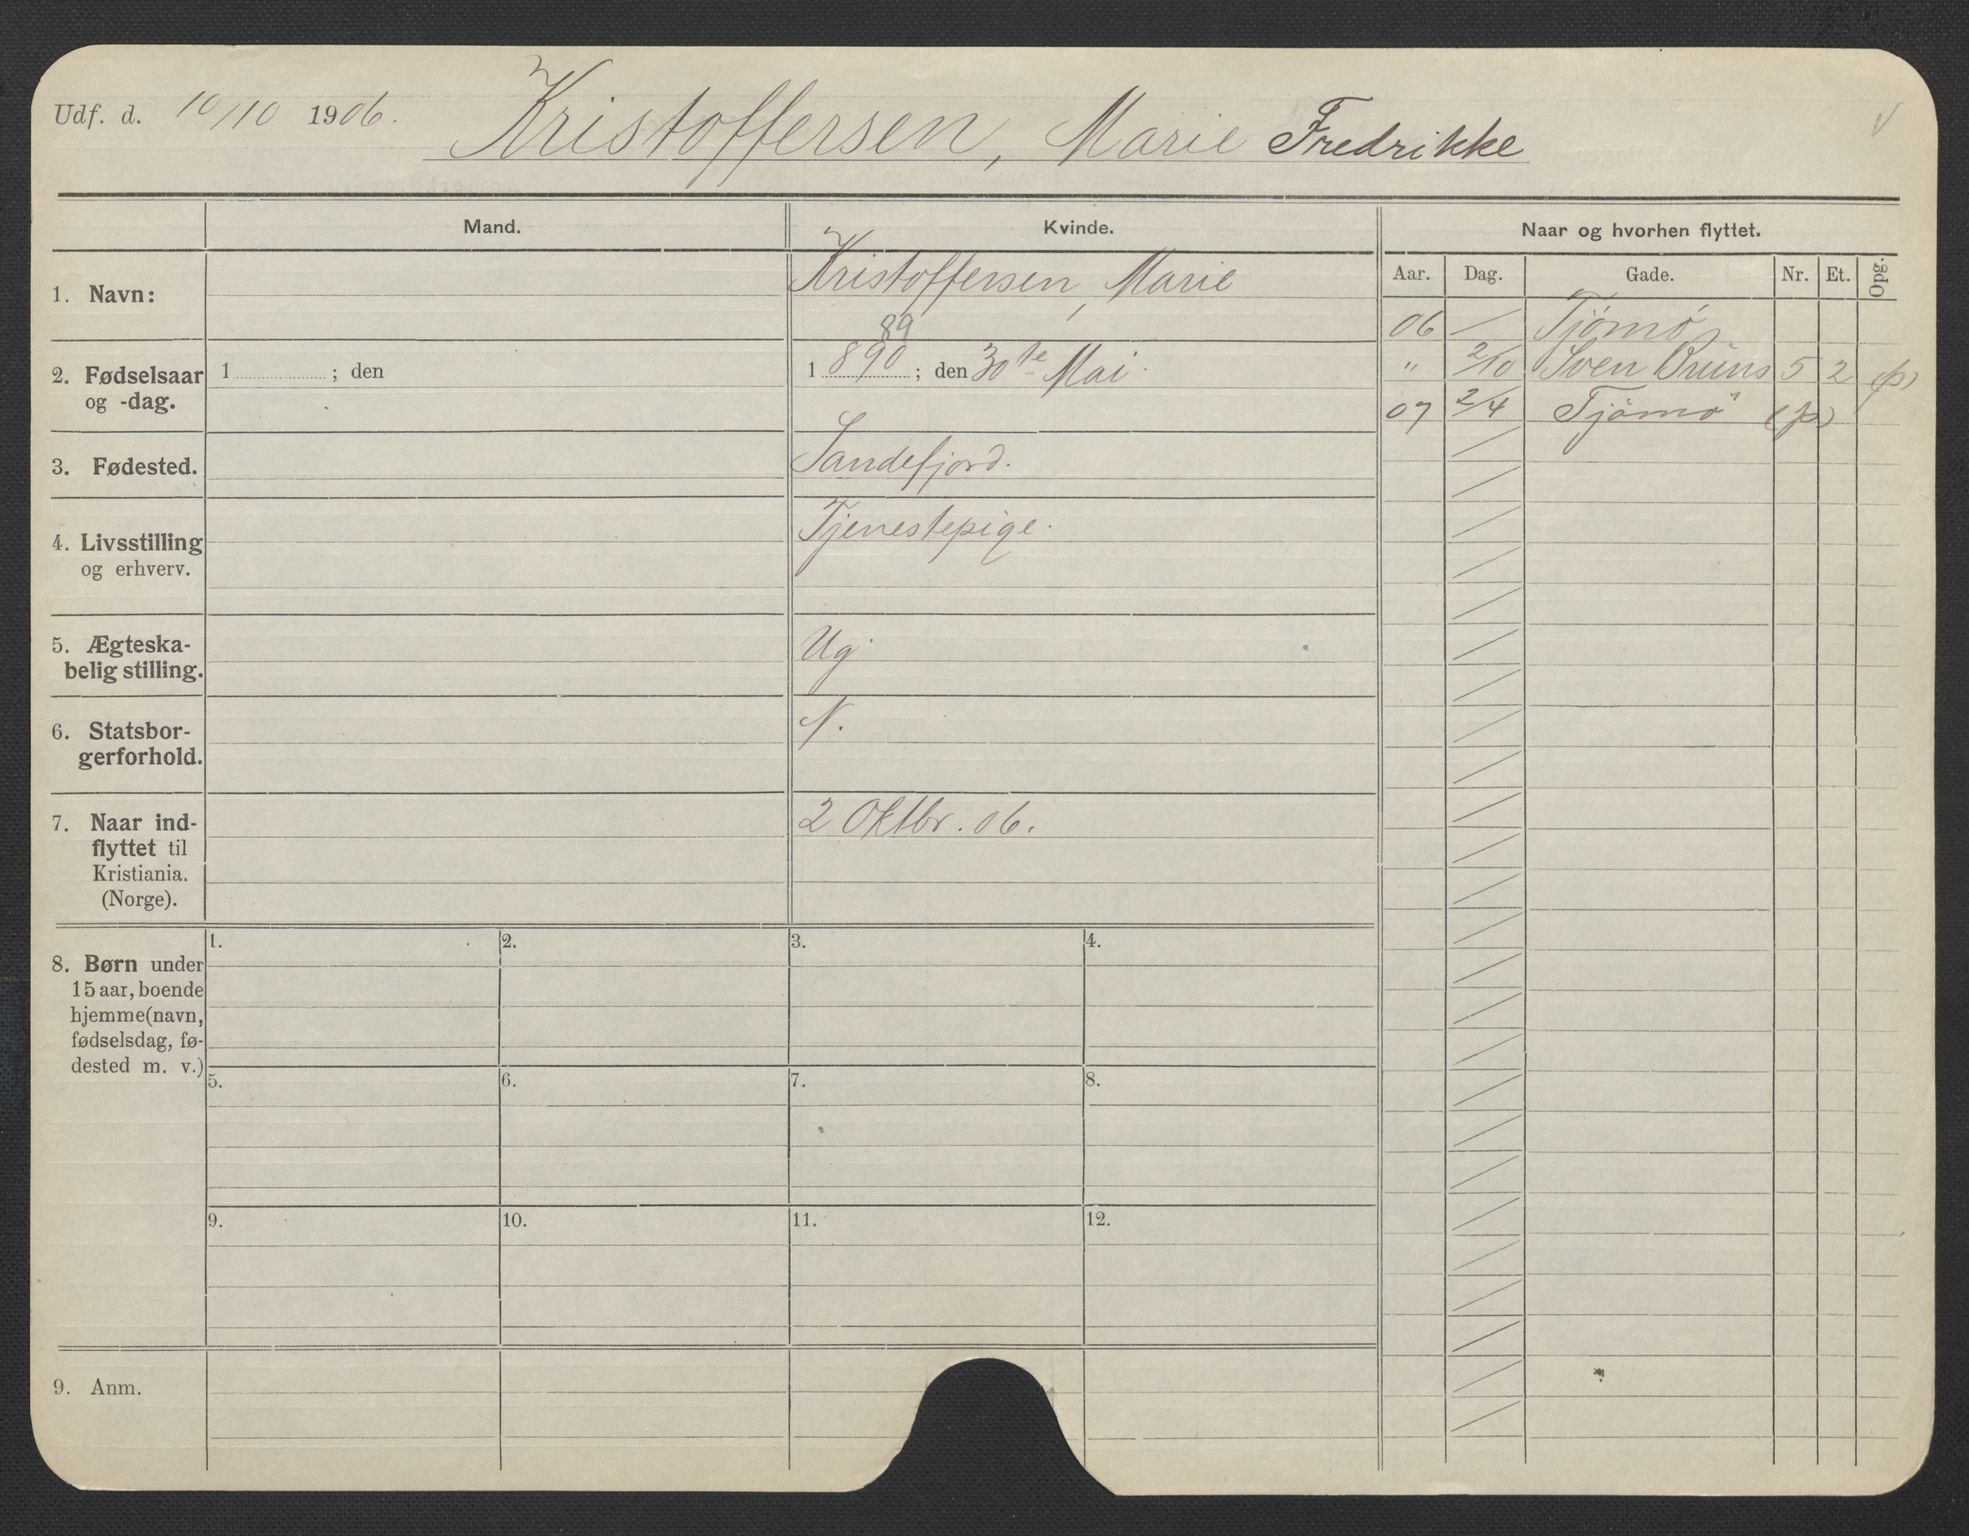 Udf. d. 10/10 1906. Kristoffersen, Marie Fredrikke
Mand. Kvinde. Naar og hvorhen flyttet.
Aar. Dag. Gade. Nr. Et. Opg.
1. Navn: Kristoffersen, Marie
06 — Tjömö
89
2. Fødselsaar og -dag. 1 ; den 1 890 ; den 30te Mai.
" 2/10 Sven Bruns 5 2 (p)
07 2/4 Tjömö (p)
3. Fødested. Sandefjord.
4. Livsstilling og erhverv. Tjenestepige.
5. Ægteska-
belig stilling. Ug
6. Statsbor-
gerforhold. N.
7. Naar ind- 2 Oktbr. 06.
flyttet til
Kristiania.
(Norge).
8. Børn under
15 aar, boende
hjemme (navn,
fødselsdag, fø-
dested m. v.)
1. 2. 3. 4.
5. 6. 7. 8.
9. 10. 11. 12.
9. Anm.